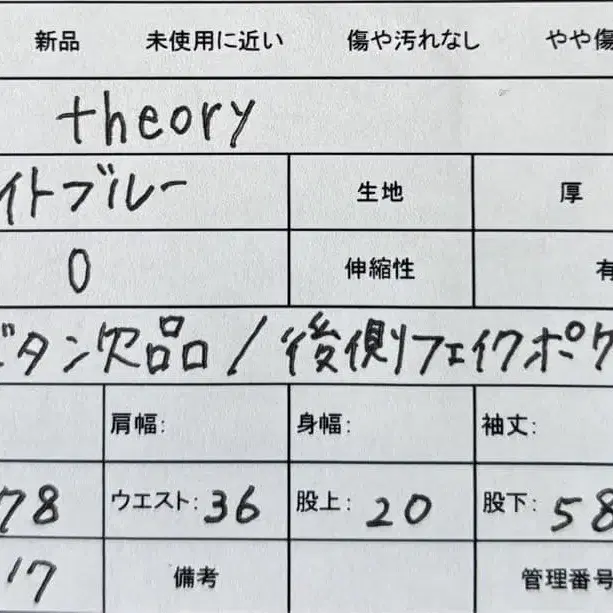 新品 未使用に近い 傷や汚れなし やや傷
theory
イトブルー 生地 厚
0 伸縮性 有
ボタン欠品 / 後側フェイクポケ
肩幅: 身幅: 袖丈:
78 ウエスト: 36 股上: 20 股下: 58
17 備考 管理番号